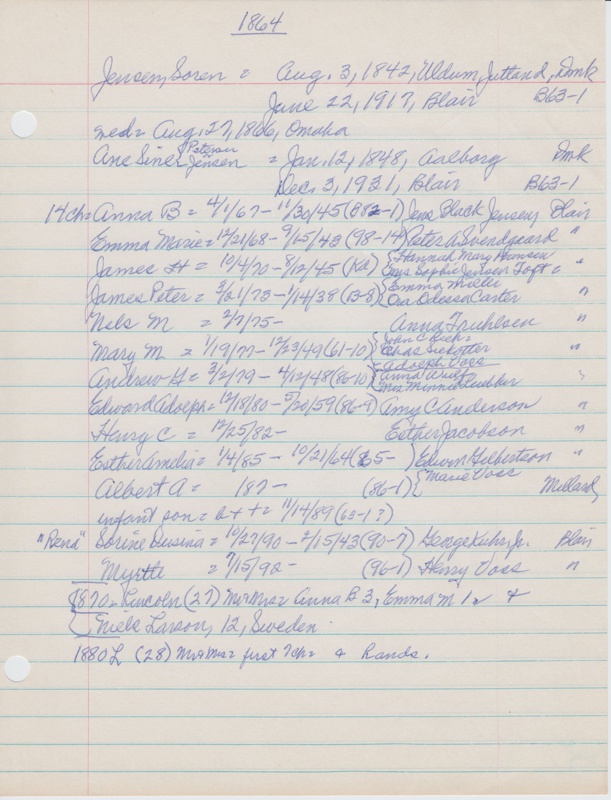 1864
Jensen, Soren = Aug. 3, 1842, Uldum, Jutland, Dmk
June 22, 1917, Blair B63-1
med = Aug. 27, 1866, Omaha
Ane Sine Petersen Jensen = Jan. 12, 1848, Aalborg Dmk
Dec. 3, 1931, Blair B63-1
14 ch = Anna B = 4/1/67 - 11/30/45 (B82-1) Jens Black Jensen, Blair
Emma Marie = 12/21/68 - 9/25/43 (98-14) Peter A Svendgaard "
James H = 10/4/70 - 8/12/45 (Ka) { Hannah Mary Hansen
Mrs Sophie Jensen Toft = "
James Peter = 3/21/73 - 1/14/38 (13-8) { Emma Mielli
Ora Odessa Carter "
Nels M = 2/7/75 - Anna Fruhlsen "
Mary M = 1/19/77 - 12/23/49 (61-10) { John C Kuhr
Chas Sielotter "
Adolph Voss
Andrew H = 3/2/79 - 4/12/48 (86-10) { Anna
Mrs Minnie "
Edward Adolph = 12/18/80 - 5/20/59 (86-9) Amy C Anderson "
Henry C = 12/25/82 - Esther Jacobson "
Esther Amelia = 1/4/85 - 10/21/64 (65- } Edwin Gilbertson "
Albert A = 187 - (86-1) { Marie Voss Millard,
infant son = b + + = 11/14/89 (63-1 ?)
"Rena" Sorine Lusina = 10/27/90 - 2/15/43 (90-7) George Kuhr Jr. Blair
Myrtle = 7/15/92 - (96-1) } Henry Voss "
1870 - Lincoln (27) Mr + Mrs = Anna B 3, Emma M 1 2 +
Niels Larson, 12, Sweden.
1880 L (28) Mr + Mrs = first 7 ch = + hands.